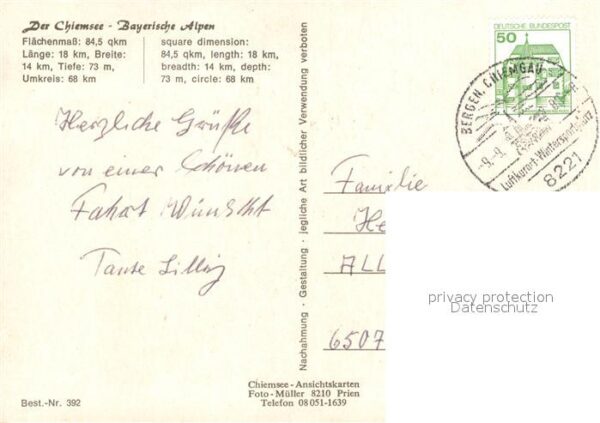 Der Chiemsee - Bayerische Alpen
Flächenmaß: 84,5 qkm
Länge: 18 km, Breite:
14 km, Tiefe: 73 m,
Umkreis: 68 km
square dimension:
84,5 qkm, length: 18 km,
breadth: 14 km, depth:
73 m, circle: 68 km
DEUTSCHE BUNDESPOST
50
BERGEN, CHIEMGAU
Luftkurort-Wintersportplatz
8221
Herzliche Grüße
von einer Schönen
Fahrt Wünscht
Tante Lilly
Nachahmung - Gestaltung - jegliche Art bildlicher Verwendung verboten
Familie
He
ALL
6507
privacy protection
Datenschutz
Chiemsee-Ansichtskarten
Foto-Müller 8210 Prien
Telefon 08051-1639
Best.-Nr. 392